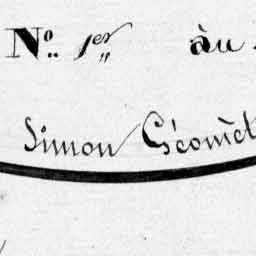 N° 1er àu
Simon Géomèt